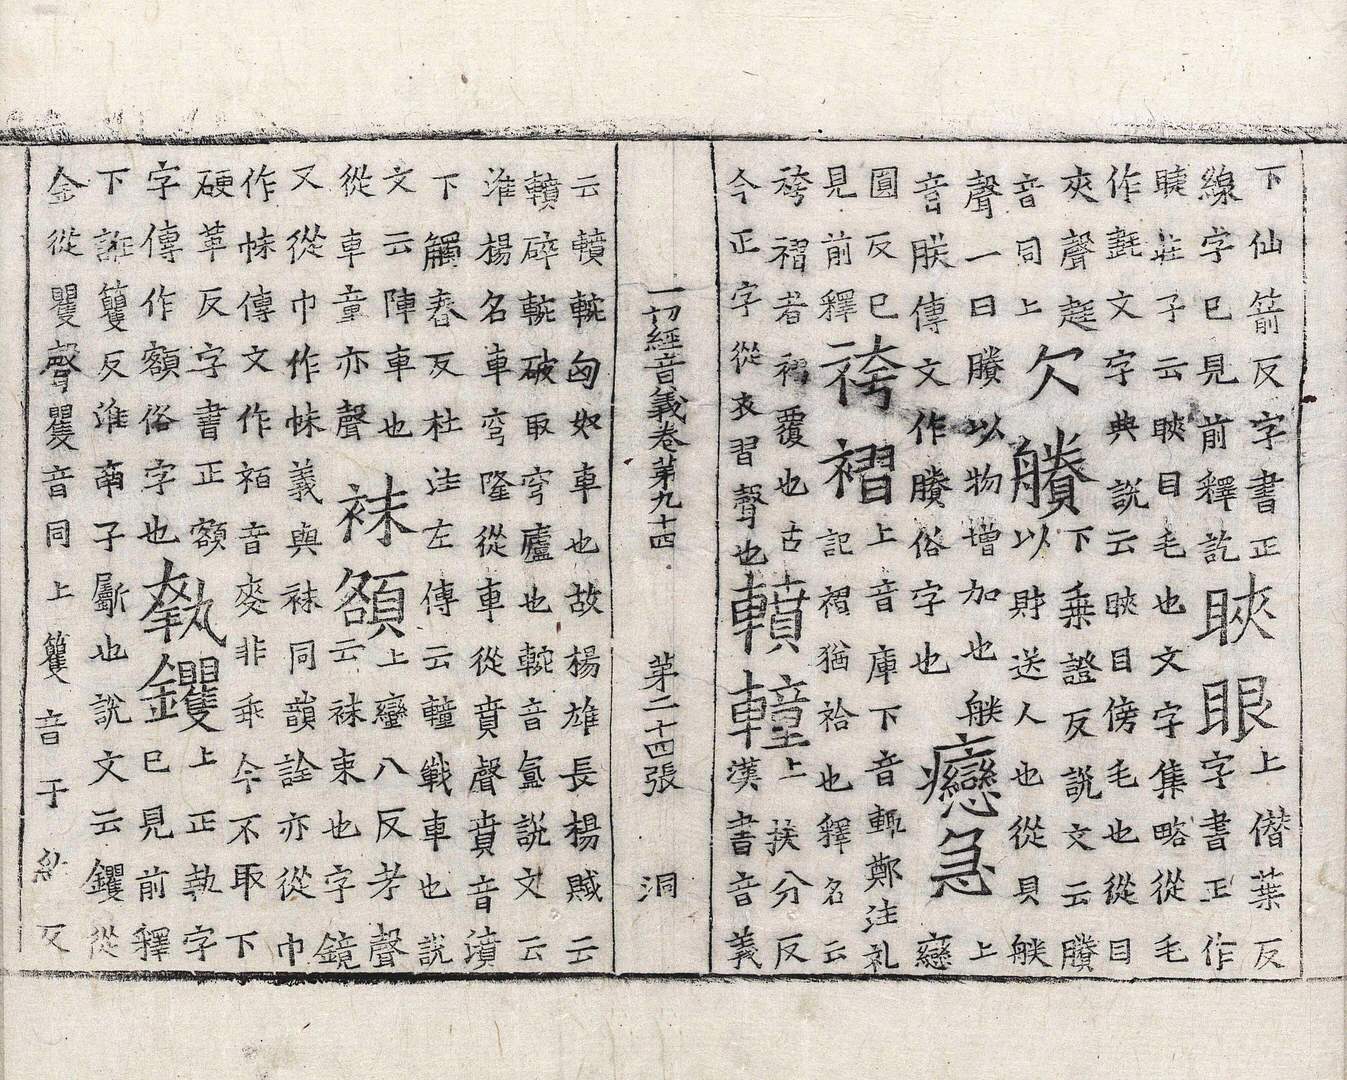 下仙箭反字書正
線字已見前釋訖
䀹眼
上僣葉反
字書正作
睫莊子云䀹目毛也文字集略從毛
作㲲文字典說云䀹目傍毛也從目
夾聲莛
音同上
欠賸
下乗證反說文云賸
以財送人也從貝䑞
聲一曰賸以物增加也䑞
音朕傳文作賸俗字也
癴急
上
癴
圓反已
見前釋
袴褶
上音庫下音輒鄭注礼
記褶猶袷也釋名云
袴褶者褶覆也古
今正字從衣習聲也
轒䡴
上扶分反
漢書音義
一切經音義卷第九十四 第二十四張 洞
云轒䡝匈奴車也故楊雄長楊賦云
轒碎䡝破取穹廬也䡝音氲說文云
淮楊名車穹隆從車從賁聲賁音濆
下觸舂反杜注左傳云䡴戰車也說
文云陣車也
從車童亦聲
袜額
上蠻八反考聲
云袜束也字鏡
又從巾作帓義與袜同韻詮亦從巾
作帓傳文作袹音麥非乖今不取下
硬革反字書正額
字傳作額俗字也
執钁
上正執字
已見前釋
下誑籰反淮南子斸也說文云钁從
金從矍聲矍音同上籰音于 反